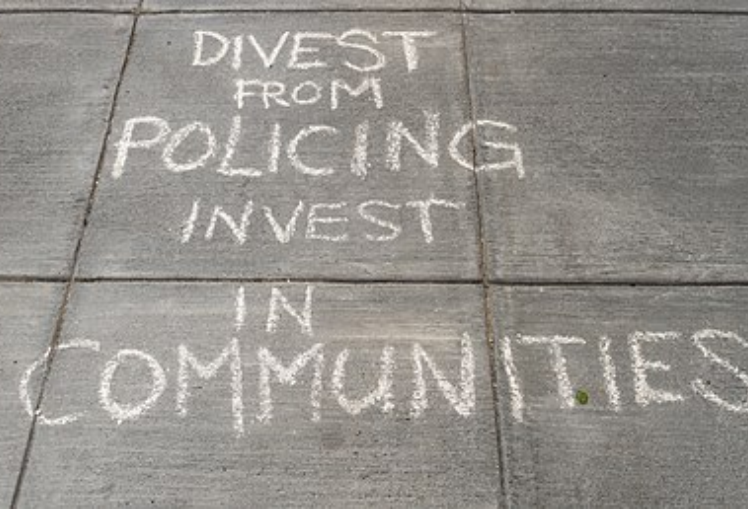 DIVEST
FROM
POLICING
INVEST
IN
COMMUNITIES